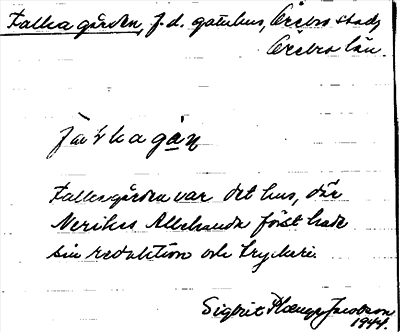 Falkagården, f.d. gatuhus, Örebro stad,
Örebro län.
Falkesgården var det hus, där
Nerikes Allehanda först hade
sin redaktion och tryckeri.
Sigbrit Plænge Jacobson
1944.